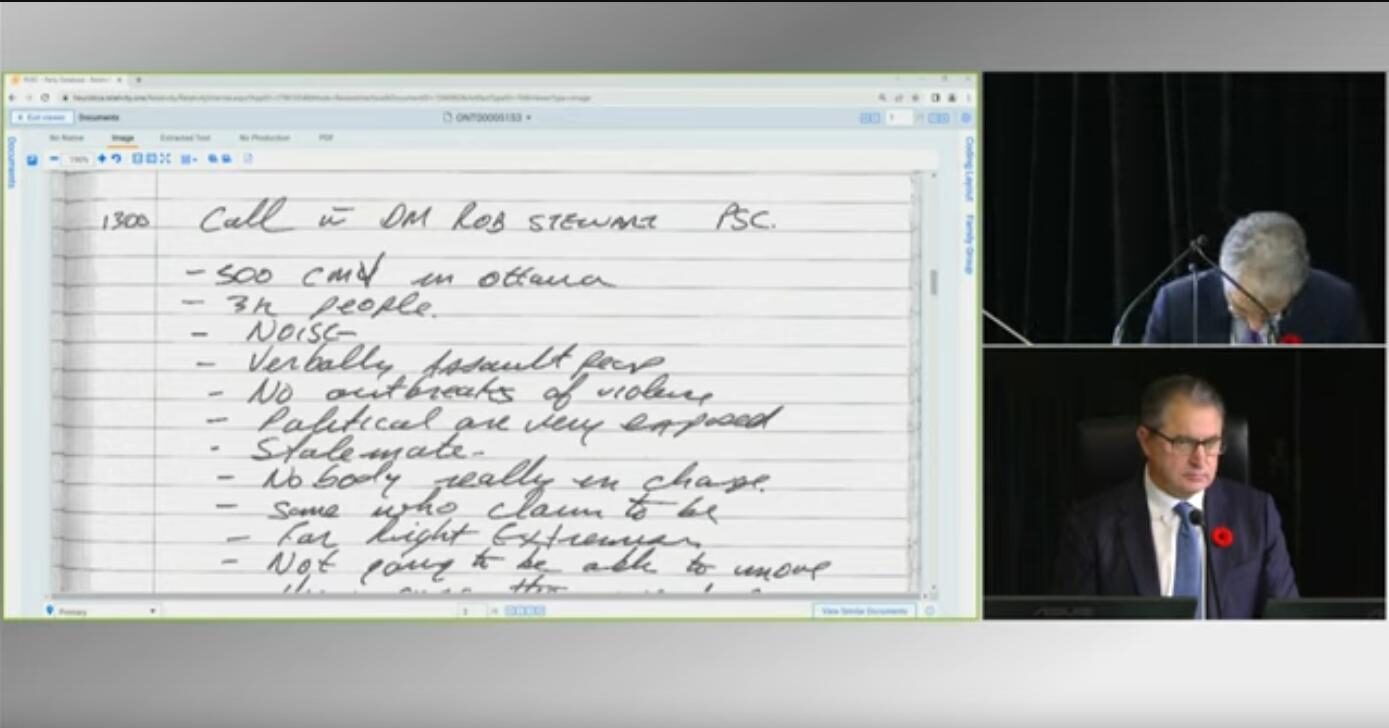 Exit viewer Documents ONT00005153 1
No Name Image Extracted Text No Production PDF
Documents
Coding Layout Family Group
190%
1300 Call w DM ROB STEWART PSC.
- 500 CMV in Ottawa
- 3K people.
- NOISE
- Verbally Assault
- No outbreaks of violence
- Political are very exposed
- Stalemate-
- Nobody really in charge.
- Some who claim to be
- Far Right Extremism
- Not going to be able to move
Primary View Similar Documents
ASUS